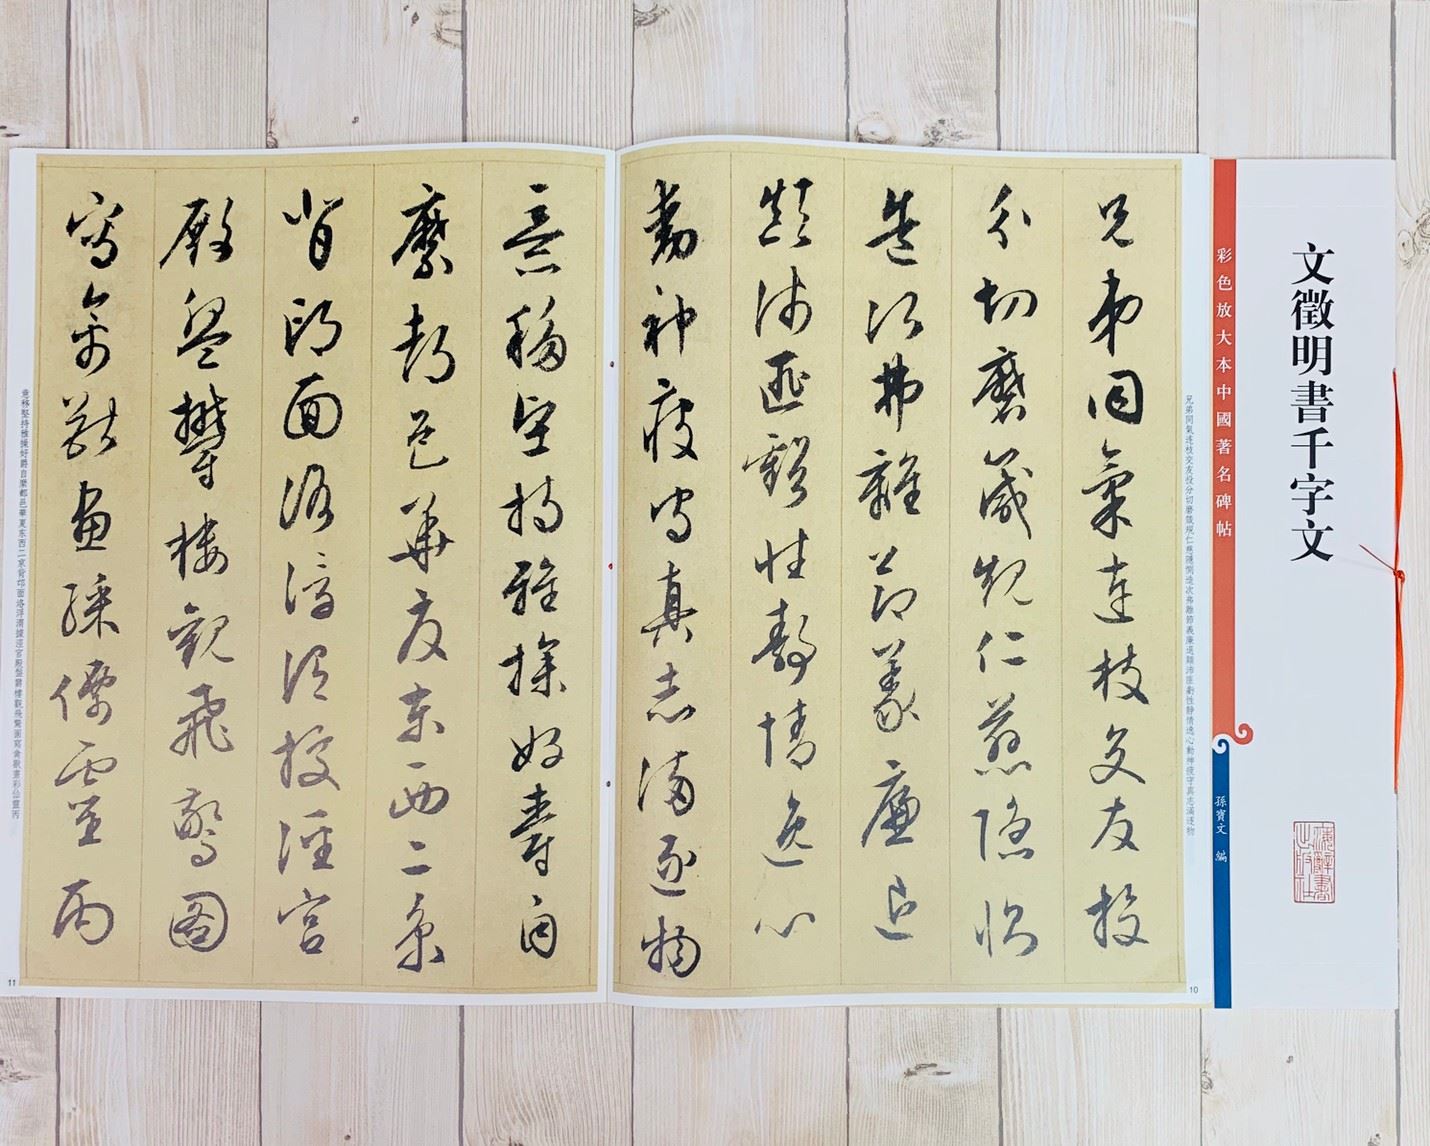 文徵明書千字文
彩色放大本中國著名碑帖
孫寶文 編
兄弟同氣連枝交友投分切磨箴規仁慈隱惻造次弗離節義廉退顛沛匪虧性靜情逸心動神疲守真志滿逐物
兄弟同氣連枝交友投
分切磨箴規仁慈隱惻
造次弗離節義廉退
顛沛匪虧性靜情逸心
動神疲守真志滿逐物
10
意移堅持雅操好爵自
縻都邑華夏東西二京
背邙面洛浮渭據涇宮
殿盤鬱樓觀飛驚圖
寫禽獸畫綵僊靈丙
意移堅持雅操好爵自縻都邑華夏东西二京背邙面洛浮渭據涇宮殿盤鬱樓觀飛驚圖寫禽獸畫彩仙靈丙
11